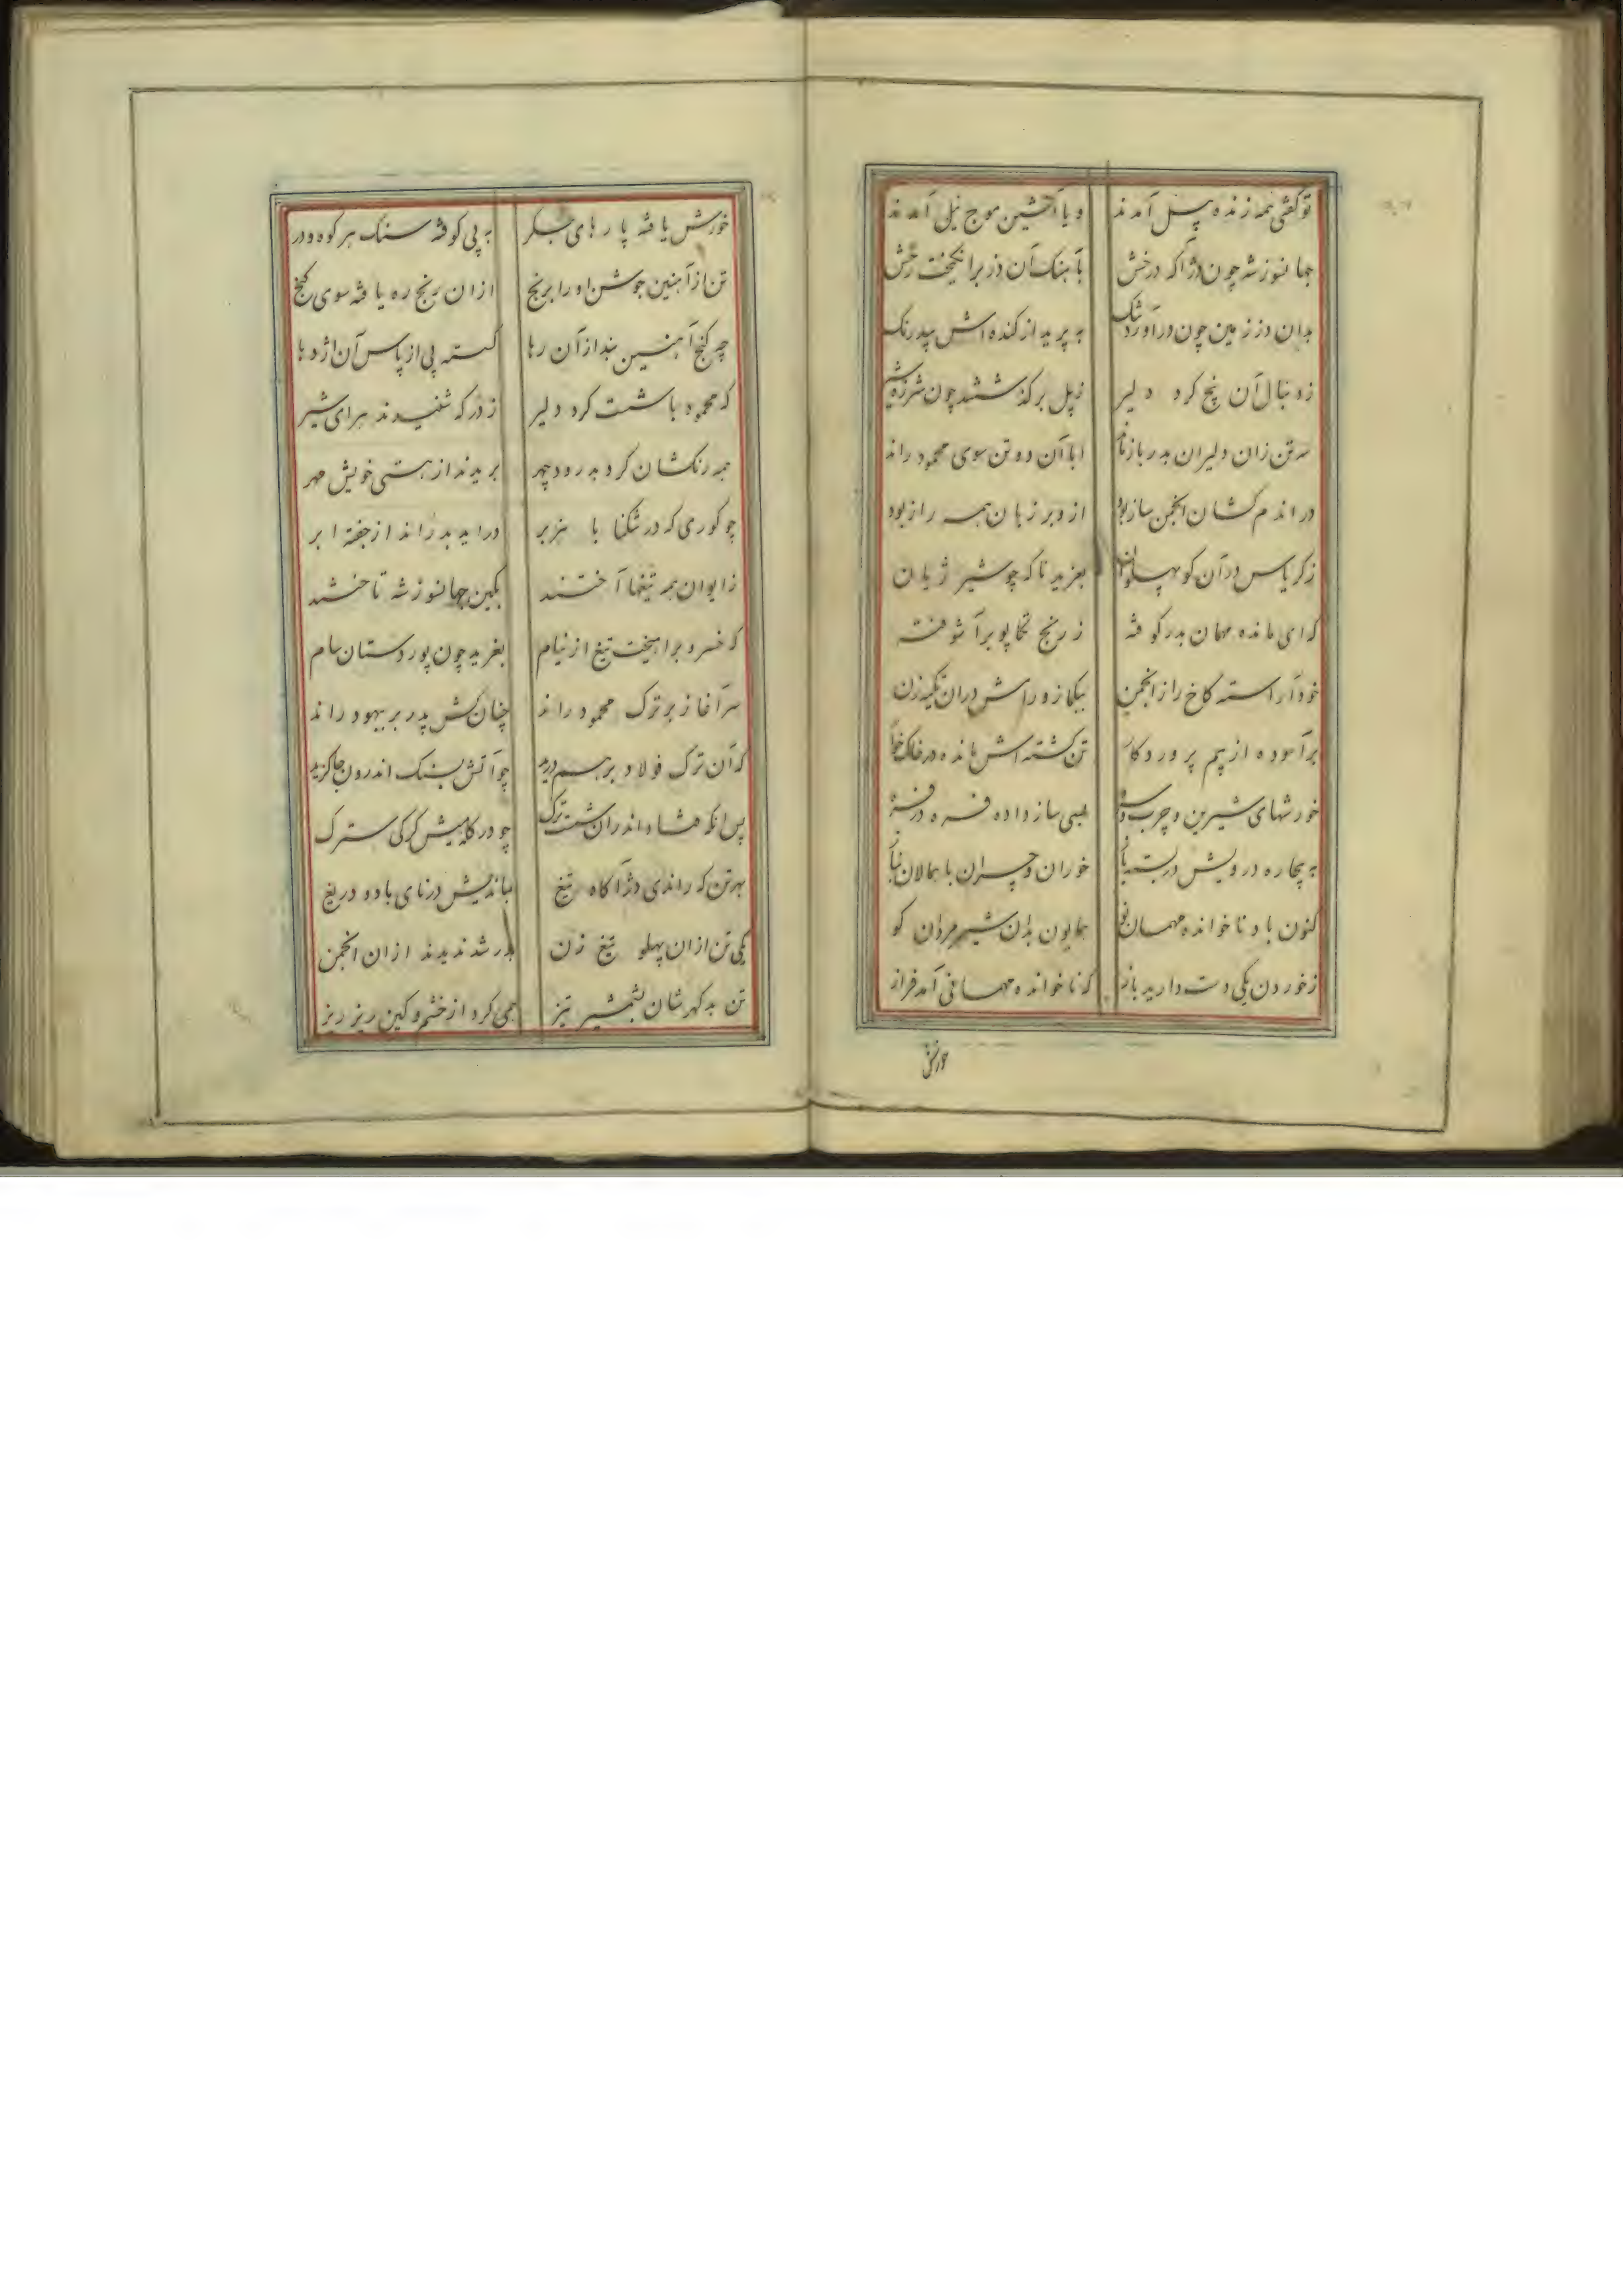 تو گفتی همه زنده پیل آمدند	و یا آتشین موج نیل آمدند
جهانسوز شه چون دژ آگه درخش	بآهنک آن دز برانکیخت رخش
بدان دز زمین چون درآورد تنک	به پرید از کنده اش بیدرنک
ز دنبال آن پنج کرد دلیر	ز پل برکذشتند چون شرزه شیر
سه تن زان دلیران بدر باز ماند	ابا آن دو تن سوی محمود راند
در اندم کشان انجمن ساز بود	از و بر زبان همه راز بود
ز کریاس در آن کو پهلوان	بغرید ناکه چو شیر ژیان
که ای مانده مهمان بدر کوفته	ز رنج تکاپو برآشوفته
خود آراسته کاخ را ز انجمن	بیکماز و رامش در ان تکیه زن
برآسوده از بیم پروردکار	تن کشته اش مانده در خاک خوار
خورشهای شیرین و چرب	بسی ساز داده فره در فره
به بیچاره درویش در بسته باز	خوران و چران با همالان بناز
کنون با دو ناخوانده مهمان نو	همایون بدان شیر مردان کو
ز خوردن یکی دست دارید باز	که ناخوانده مهمانی آمد فراز
خورش
خورش یافته پارهای جکر	به پی کوفته سنک هر کوه و در
تن از آهنین جوشن او را برنج	از ان رنج ره یافته سوی کنج
چه کنج آهنین بند از آن رها	کسسته پی از پاس آن اژدها
که محمود با شست کرد دلیر	ز درکه شنیدند هرای شیر
همه رنکشان کرد بدرود چهر	بریدند از هستی خویش مهر
چو کوری که در تنکنا با هزبر	دراید بدراند از جفته ابر
ز ایوان همه تیغها آختند	بکین جهانسوز شه تاختند
که خسرو برآهیخت تیغ از نیام	بغرید چون پور دستان سام
سرآغاز بر ترک محمود راند	چنان کش پدر بر یهود راند
که آن ترک فولاد بر هم درید	چو آتش بسنک اندرون جا کزید
پس آنکه شاه اندران شست ترک	چو در کله میش کرکی سترک
بهر تن که راندی دژ آکاه تیغ	بماندیش در نای باد و دریغ
یکی تن از ان پهلو تیغ زن	بدر شد ندیدند از ان انجمن
تن بدکهرشان بشمشیر تیز	همی کرد از خشم و کین ریز ریز